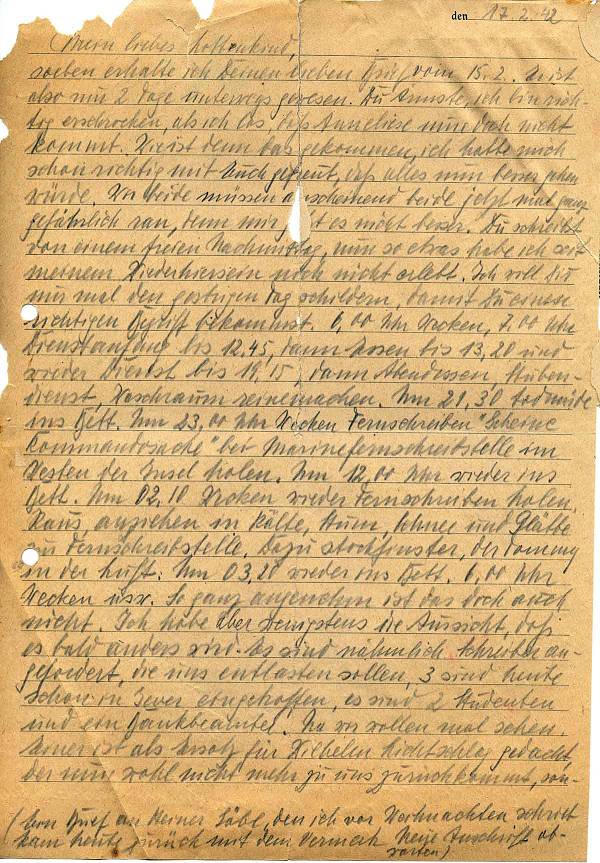 den 17.2.42
Mein liebes hoffenkind,
soeben erhalte ich Deinen lieben Brief vom 15.2. Er ist
also nur 2 Tage unterwegs gewesen. Du kannste, ich bin rich-
tig erschrocken, als ich las daß Anneliese nun doch nicht
kommt. Wie ist denn das gekommen, ich hatte mich
schon richtig mit Euch gefreut, daß alles nun besser gehen
würde. Wir beide müssen anscheinend beide jetzt mal ganz
gefährlich ran, denn mir geht es nicht besser. Du schreibst
von einem freien Nachmittag, nun so etwas habe ich seit
meinem Wiederhiersein noch nicht erlebt. Ich will Dir
nur mal den gestrigen Tag schildern, damit Du einen
richtigen Begriff bekommst. 6,00 Uhr Wecken, 7.00 Uhr
Dienstanfang bis 12,45, dann Essen bis 13,20 und
wieder Dienst bis 19,15, dann Abendessen, Stuben-
dienst, Waschraum reinemachen. Um 21,30 todmüde
ins Bett. Um 23,00 Uhr Wecken Fernschreiben "Geheime
Kommandosache" bei Marinefernschreibstelle im
Westen der Insel holen. Um 12,00 Uhr wieder ins
Bett. Um 02,10 Wecken wieder Fernschreiben holen.
Raus, anziehen in Kälte, Sturm, Schnee und Glätte
zu Fernschreibstelle. Dazu stockfinster, der Tommy
in der Luft. Um 03,20 wieder ins Bett. 6,00 Uhr
Wecken usw. So ganz angenehm ist das doch auch
nicht. Ich habe aber wenigstens die Aussicht, daß
es bald anders wird. Es sind nähmlich Schreiber an-
gefordert, die uns entlasten sollen, 3 sind heute
schon in Jever eingetroffen, es sind 2 Studenten
und ein Bankbeamter. Na wir wollen mal sehen.
Einer ist als Ersatz für Wilhelm Richtschlag gedacht,
der nun wohl nicht mehr zu uns zurückkommt, son-
(Ein Brief an Werner Löbe, den ich vor Weihnachten schrieb
kam heute zurück mit dem Vermerk Neue Anschrift ab-
warten)